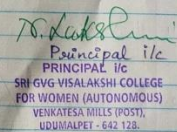 N. Lakshmi
Principal i/c
PRINCIPAL i/c
SRI GVG VISALAKSHI COLLEGE
FOR WOMEN (AUTONOMOUS)
VENKATESA MILLS (POST),
UDUMALPET - 642 128.